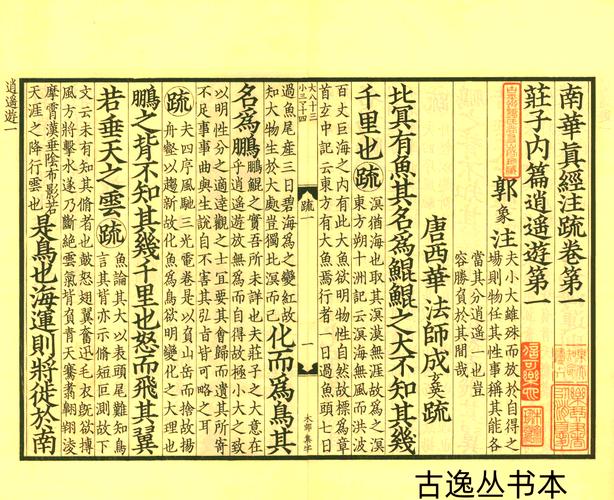 南華眞經注疏卷第一
莊子內篇逍遙遊第一
郭象注
夫小大雖殊而放於自得之
場則物任其性事稱其能各
當其分逍遙一也豈
容勝負於其間哉
唐西華法師成玄英疏
北冥有魚其名爲鯤鯤之大不知其幾
千里也疏
溟猶海也取其溟漠無涯故爲之溟
東方朔十洲記云溟海無風而洪波
百丈巨海之內有此大魚欲明物性自然故標爲章
首玄中記云東方有大魚焉行者一日過魚頭七日
疏一
一
木邨嘉平
過魚尾產三日碧海爲之變紅故
知大物生於大處豈獨北溟而已
化而爲鳥其
名爲鵬
鵬鯤之實吾所未詳也夫莊子之大意在
乎逍遙遊放無爲而自得故極小大之致
以明性分之適達觀之士宜要其會歸而遺其所寄
不足事事曲與生說自不害其弘旨皆可略之耳
疏
夫四序風馳三光電卷是以負山岳而捨故揚
舟壑以趨新故化魚爲鳥欲明變化之大理也
鵬之背不知其幾千里也怒而飛其翼
若垂天之雲疏
魚論其大以表頭尾難知鳥
言其背亦示脩短叵測故下
文云未有知其脩者也鼓怒翅翼奮迅毛衣旣欲摶
風方將擊水遂乃斷絕雲氣背負青天騫翥翱翔凌
摩霄漢垂陰布影若
天涯之降行雲也
是鳥也海運則將徙於南
逍遙遊一
古逸丛书本